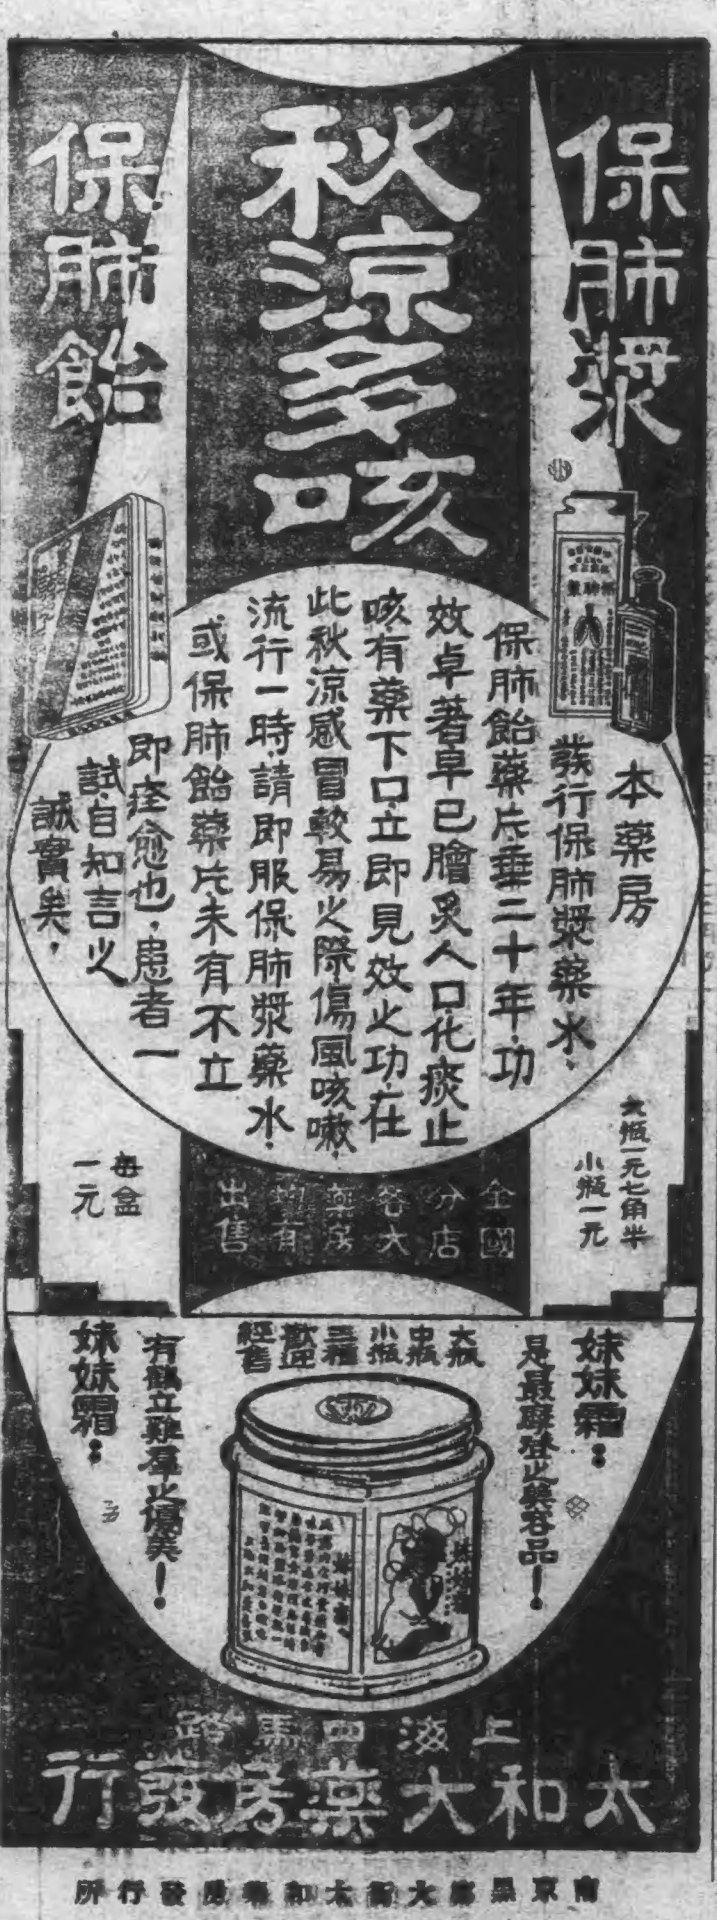 保肺漿
秋涼多咳
保肺飴
本藥房
發行保肺漿藥水、
保肺飴藥片垂二十年、功
效卓著早已膾炙人口、化痰止
咳有藥下口、立即見效之功、在
此秋涼感冒較易之際、傷風咳嗽、
流行一時、請即服保肺漿藥水、
或保肺飴藥片未有不立
即痊愈也、患者一
試、自知言之
誠實矣、
大瓶一元七角半
小瓶一元
每盒
一元
全國
分店
各大
藥房
均有
出售
妹妹霜：
是最摩登之美容品！
大瓶
中瓶
小瓶
三種
歡迎
經售
有鶴立雞羣之優美！
妹妹霜：
妹妹霜
上海四馬路
太和大藥房發行
南京 大新太和藥房發行所